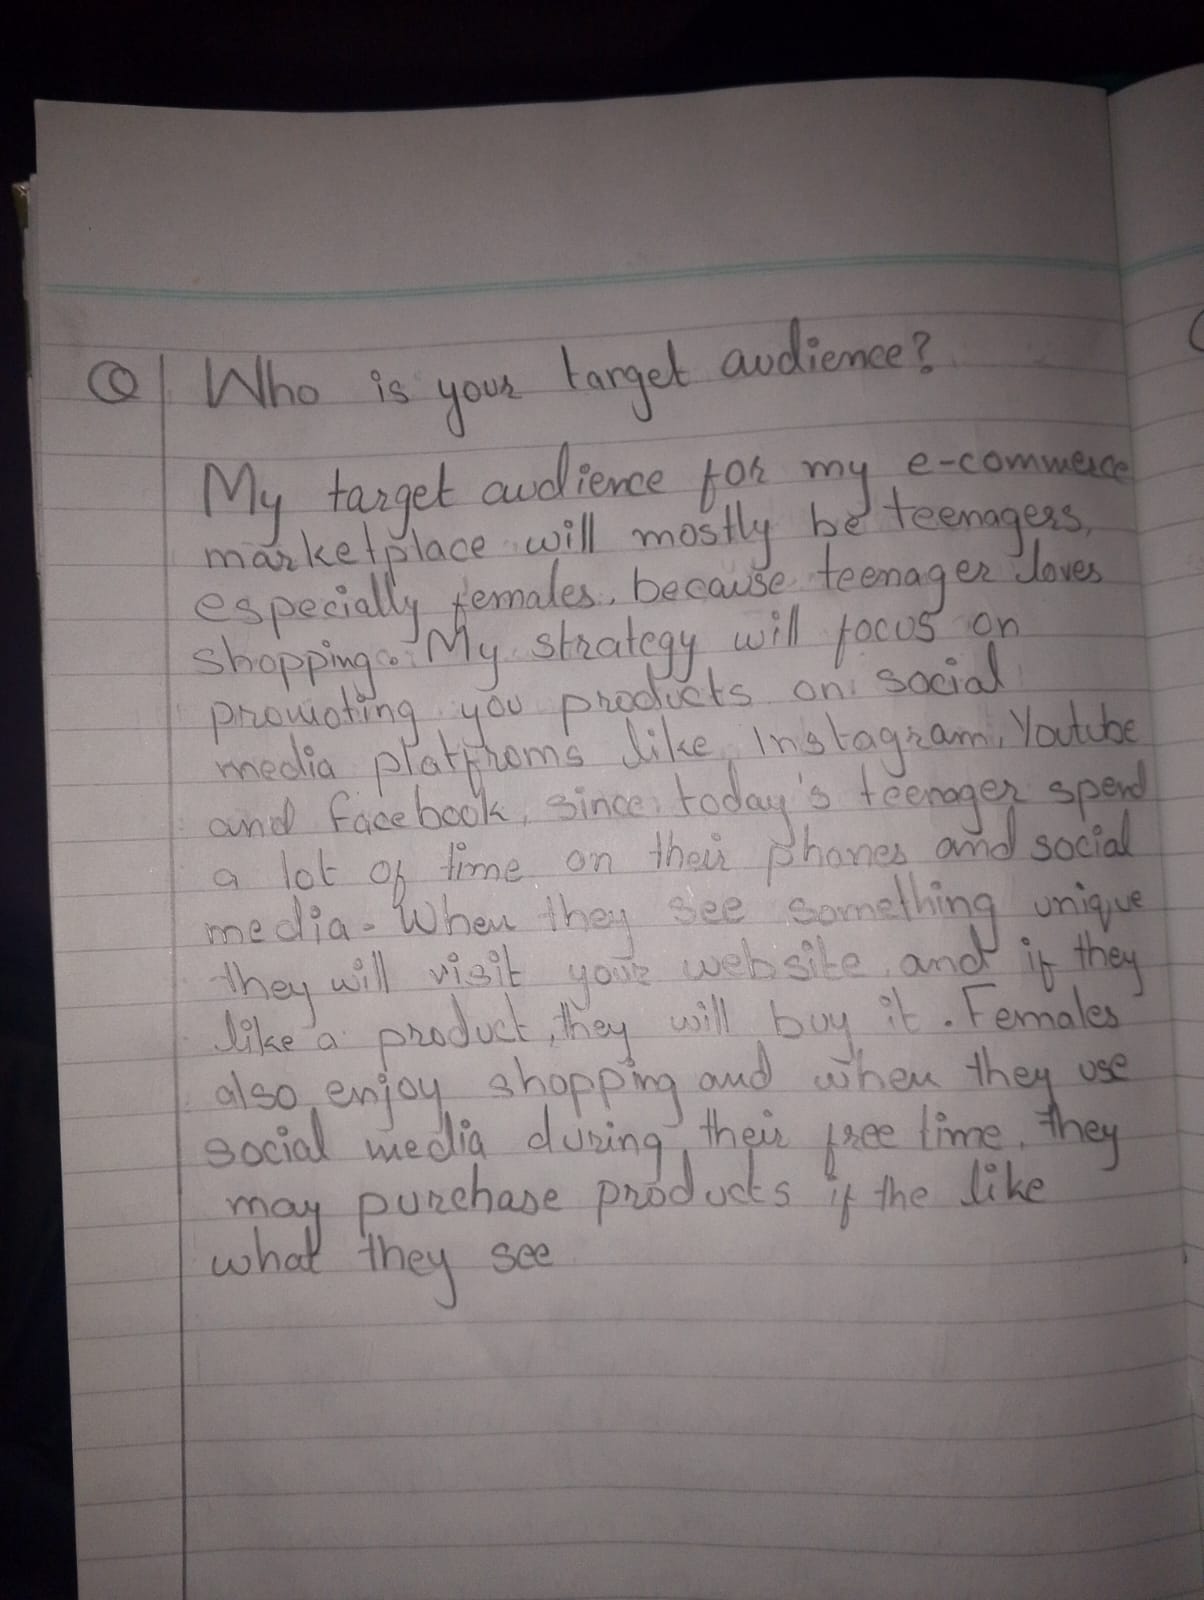 Q Who is your target audience?
My target audience for my e-commerce
marketplace will mostly be teenagers,
especially females, because teenager loves
shopping. My strategy will focus on
promoting you products on social
media platfroms like Instagram, Youtube
and facebook, since today's teenager spend
a lot of time on their phones and social
media. When they see something unique
they will visit your website and if they
like a product, they will buy it. Females
also enjoy shopping and when they use
social media during their free time, they
may purchase products if the like
what they see